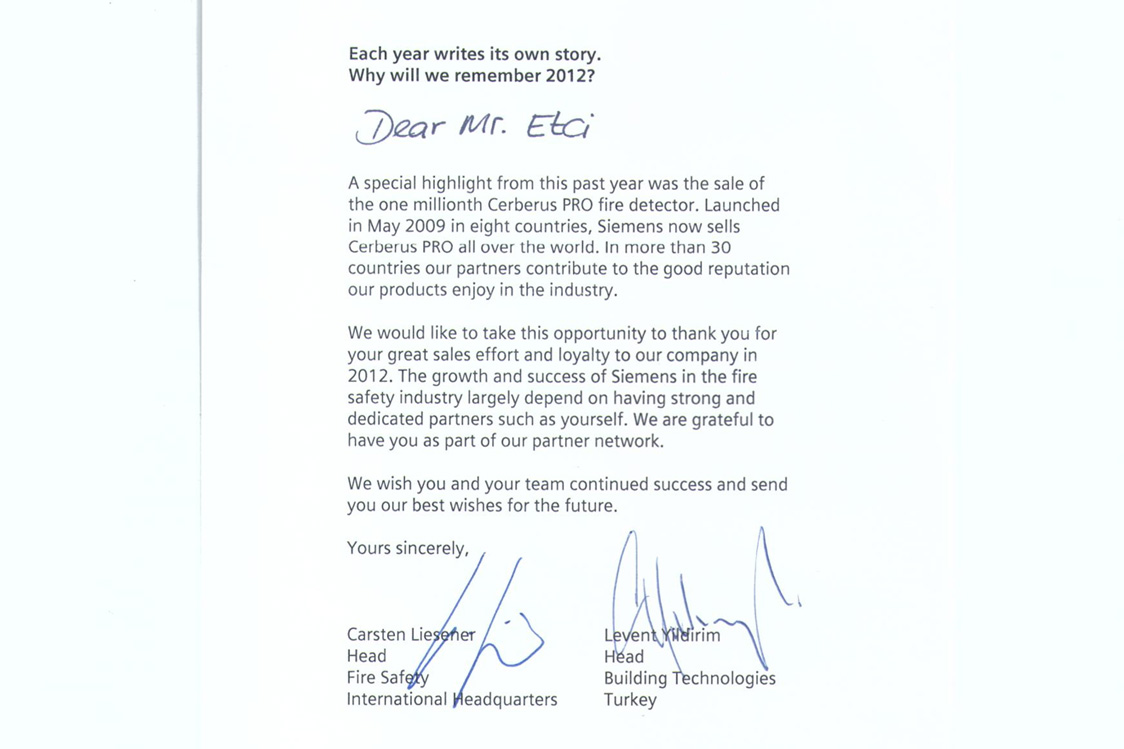 Each year writes its own story.
Why will we remember 2012?
Dear Mr. Etci
A special highlight from this past year was the sale of
the one millionth Cerberus PRO fire detector. Launched
in May 2009 in eight countries, Siemens now sells
Cerberus PRO all over the world. In more than 30
countries our partners contribute to the good reputation
our products enjoy in the industry.
We would like to take this opportunity to thank you for
your great sales effort and loyalty to our company in
2012. The growth and success of Siemens in the fire
safety industry largely depend on having strong and
dedicated partners such as yourself. We are grateful to
have you as part of our partner network.
We wish you and your team continued success and send
you our best wishes for the future.
Yours sincerely,
Carsten Liesener
Head
Fire Safety
International Headquarters
Levent Yildirim
Head
Building Technologies
Turkey